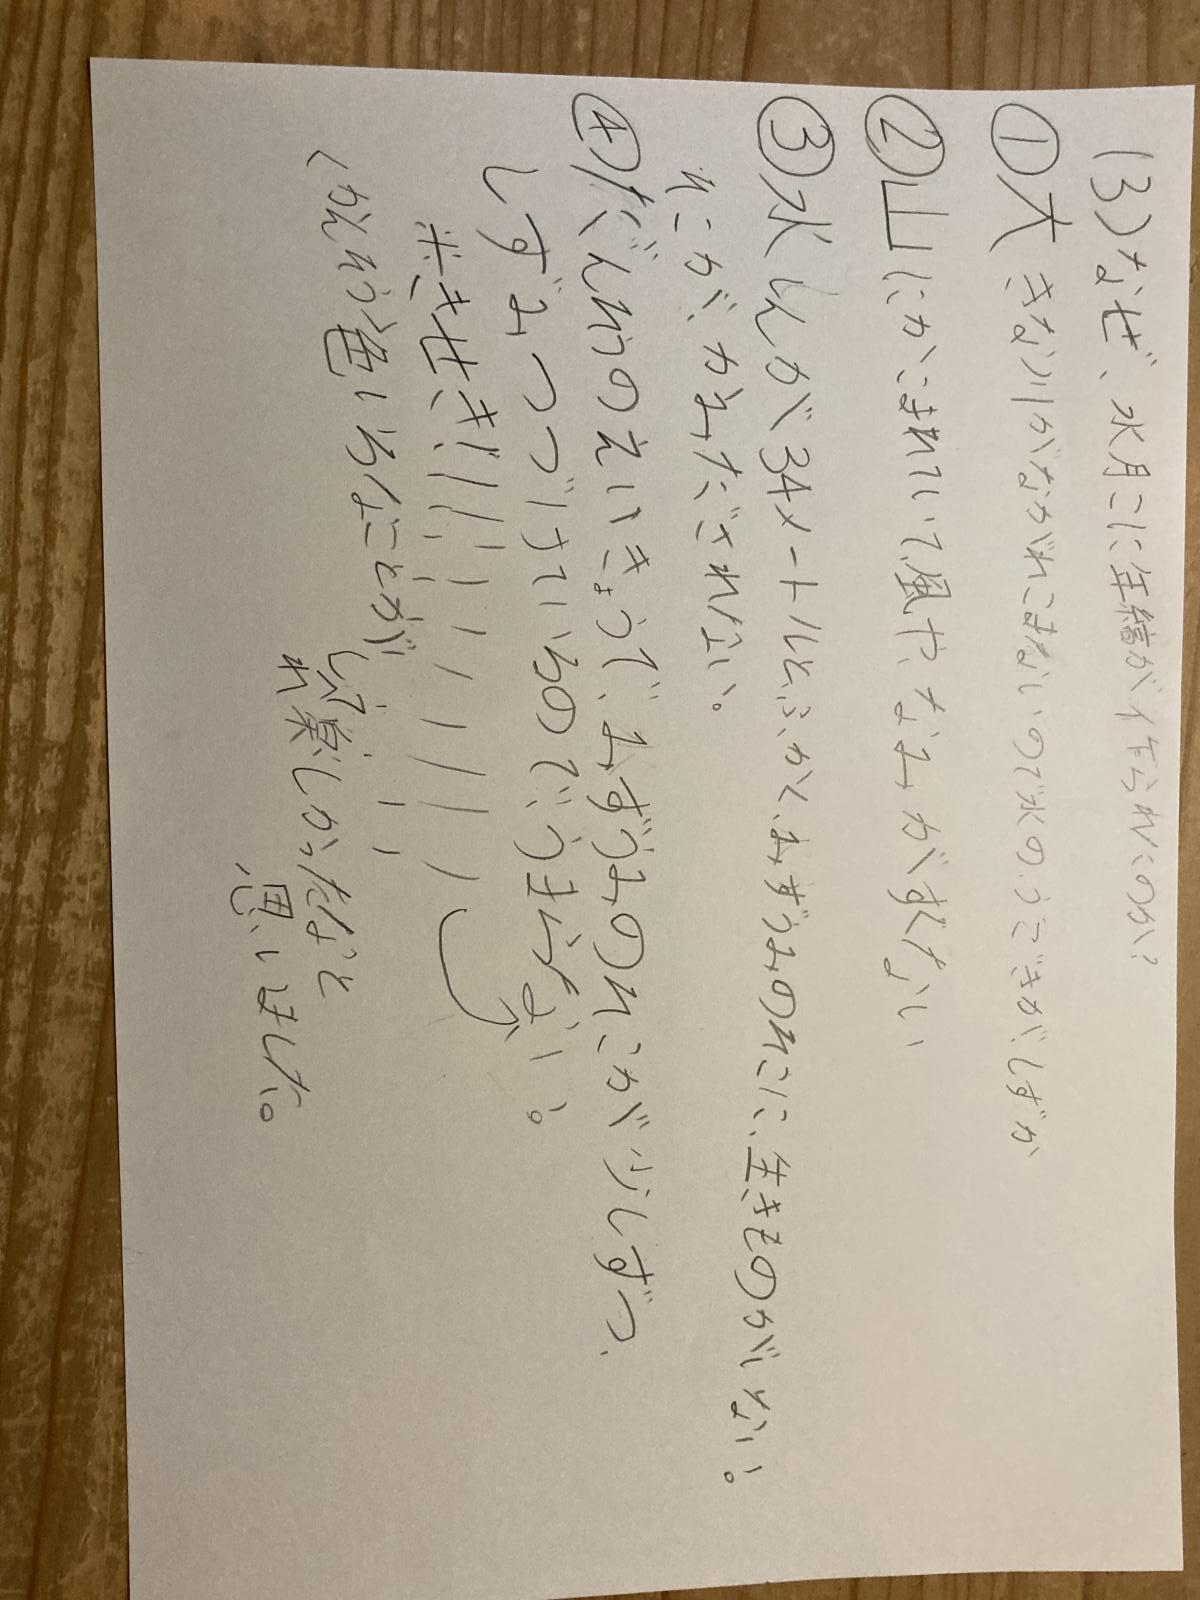 (3)なぜ、水月こに年縞が作られたのか?
①大きな川がながれこまないので水のうごきがしずか
②山にかこまれていて風や、なみがすくない
③水しんが34メートルとふかく、みずうみのそこに、生きものがいない。
そこが、かみだされない。
④だんそうのえいきょうで、みずうみのそこが少しずつ、
しずみつづけているのでうまらない。
※きせき
くわしく色いろなことが
しれて
楽しかったなと
思いました。